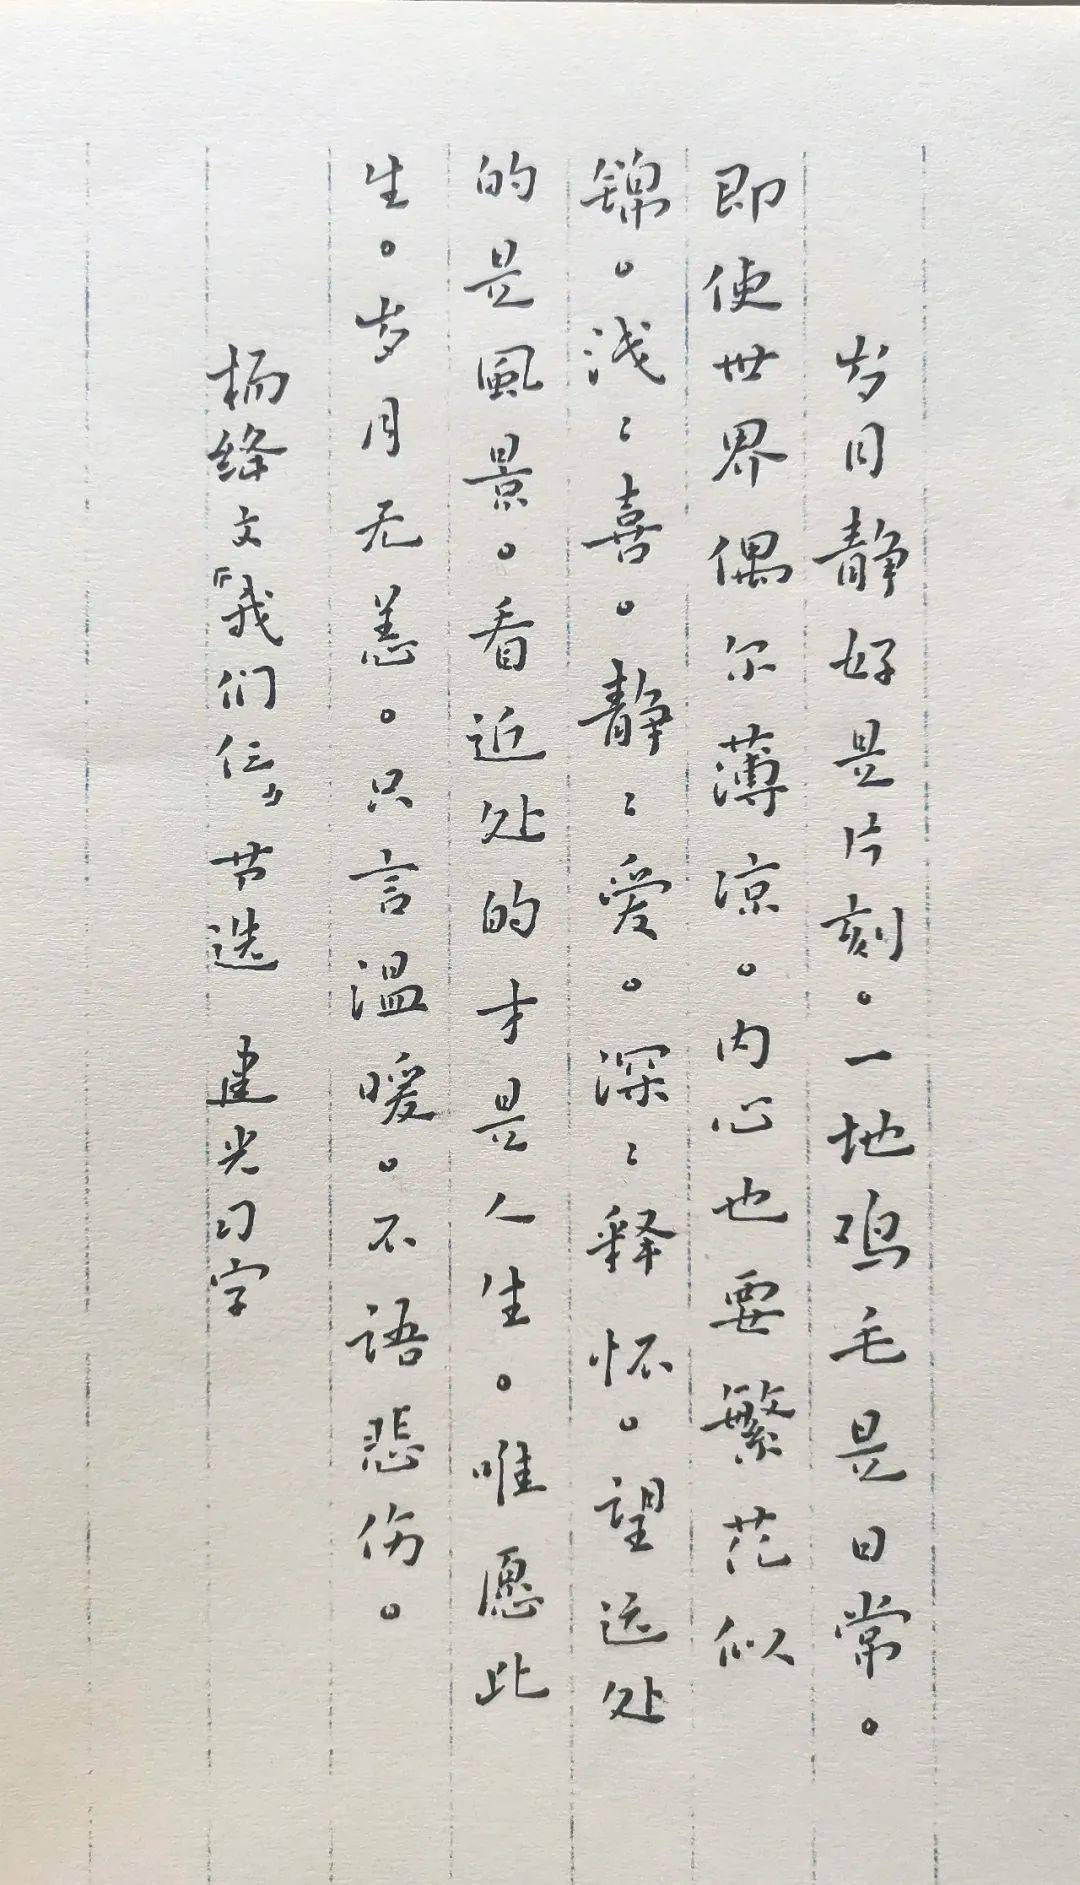 岁月静好是片刻。一地鸡毛是日常。
即使世界偶尔薄凉。内心也要繁花似
锦。浅々喜。静々爱。深々释怀。望远处
的是風景。看近处的才是人生。唯愿此
生。岁月无恙。只言温暖。不语悲伤。
杨绛文『我们仨』节选 建光习字